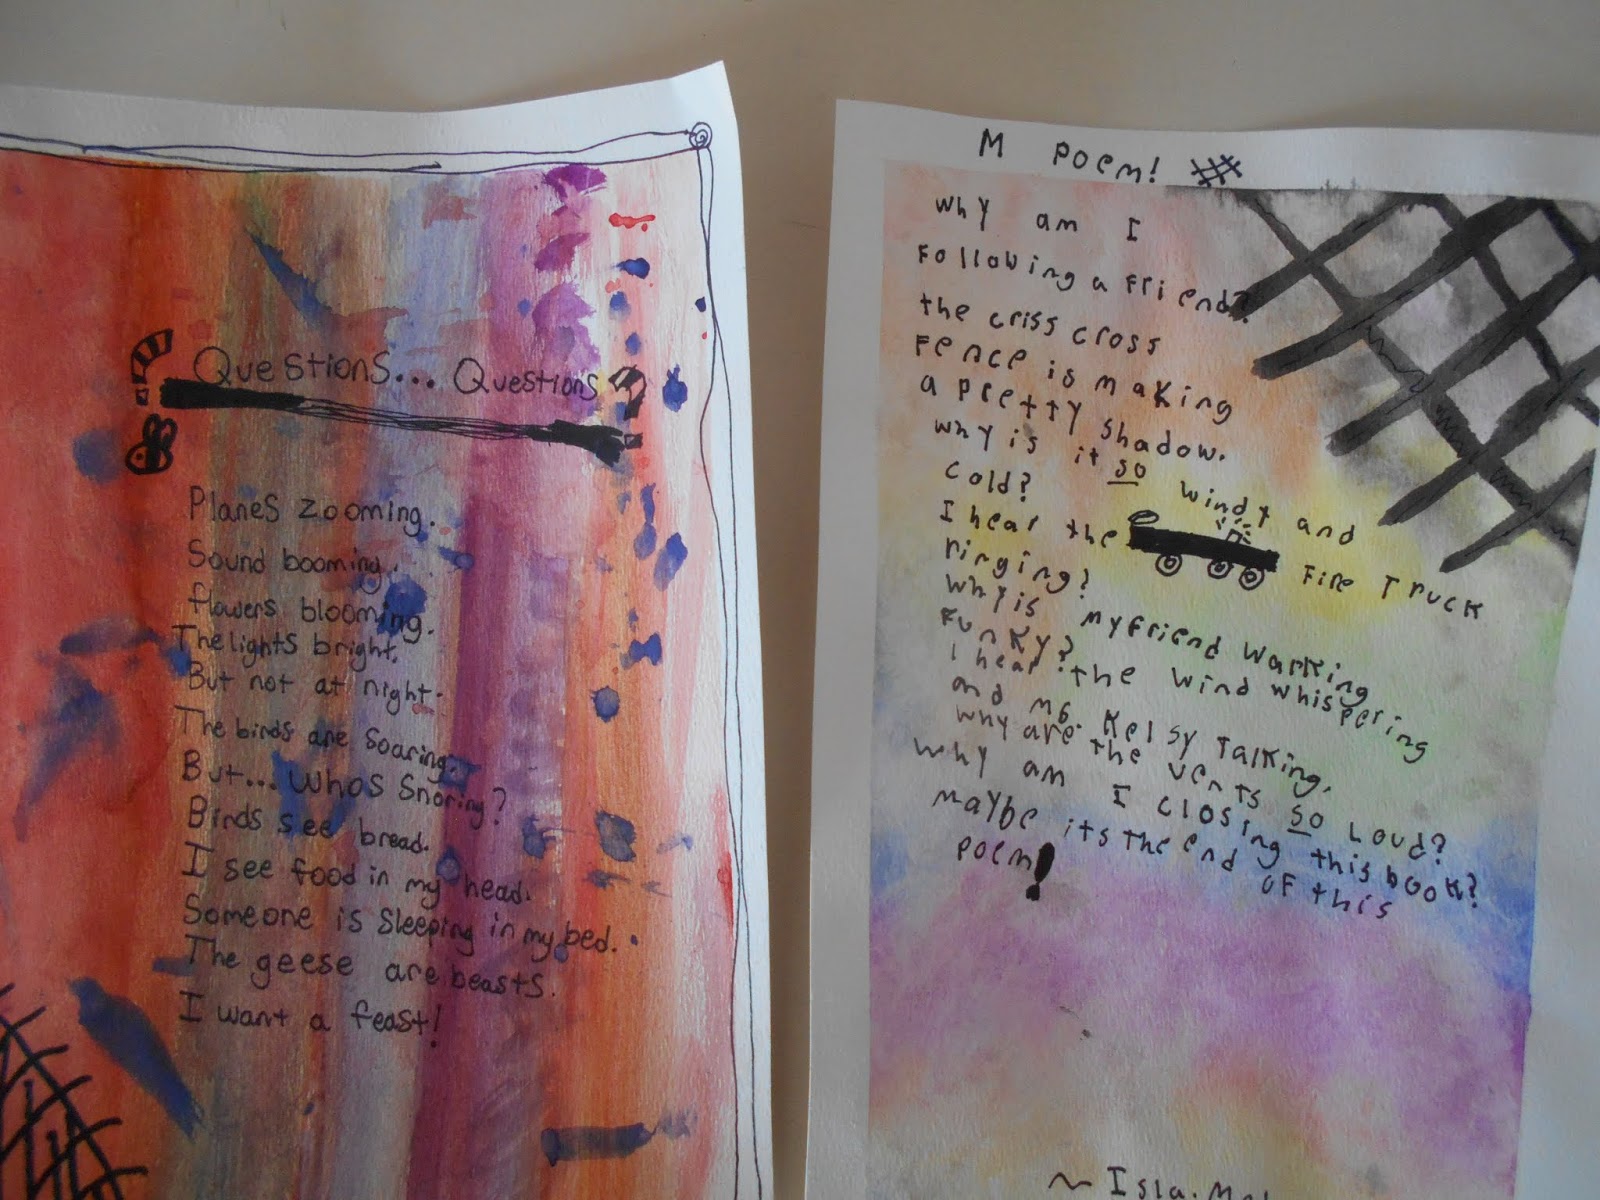 Questions... Questions
Planes zooming.
Sound booming.
flowers blooming.
The lights bright.
But not at night.
The birds are soaring.
But... Whos snoring?
Birds see bread.
I see food in my head.
Someone is sleeping in my bed.
The geese are beasts.
I want a feast!
M Poem!
why am I
Following a friend?
the criss cross
Fence is making
a pretty shadow.
why is it so windy and
cold?
I hear the Fire Truck
ringing?
why is my friend walking
Funky?
I hear the wind whispering
and ms. Kelsy talking.
why are the vents so loud?
why am I closing this book?
maybe its the end of this
poem!
~ Isla.